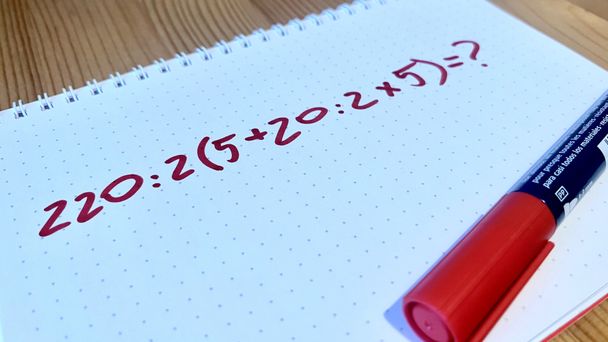 220:2(5+20:2×5)=?
pour presque toutes les matières
para casi todos los materiales
PP